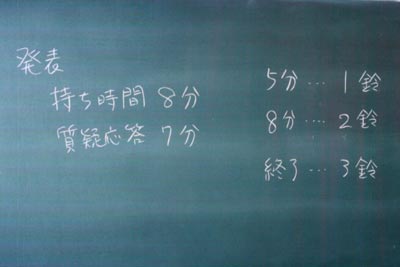 発表
持ち時間 8分
質疑応答 7分
5分…1鈴
8分…2鈴
終了…3鈴